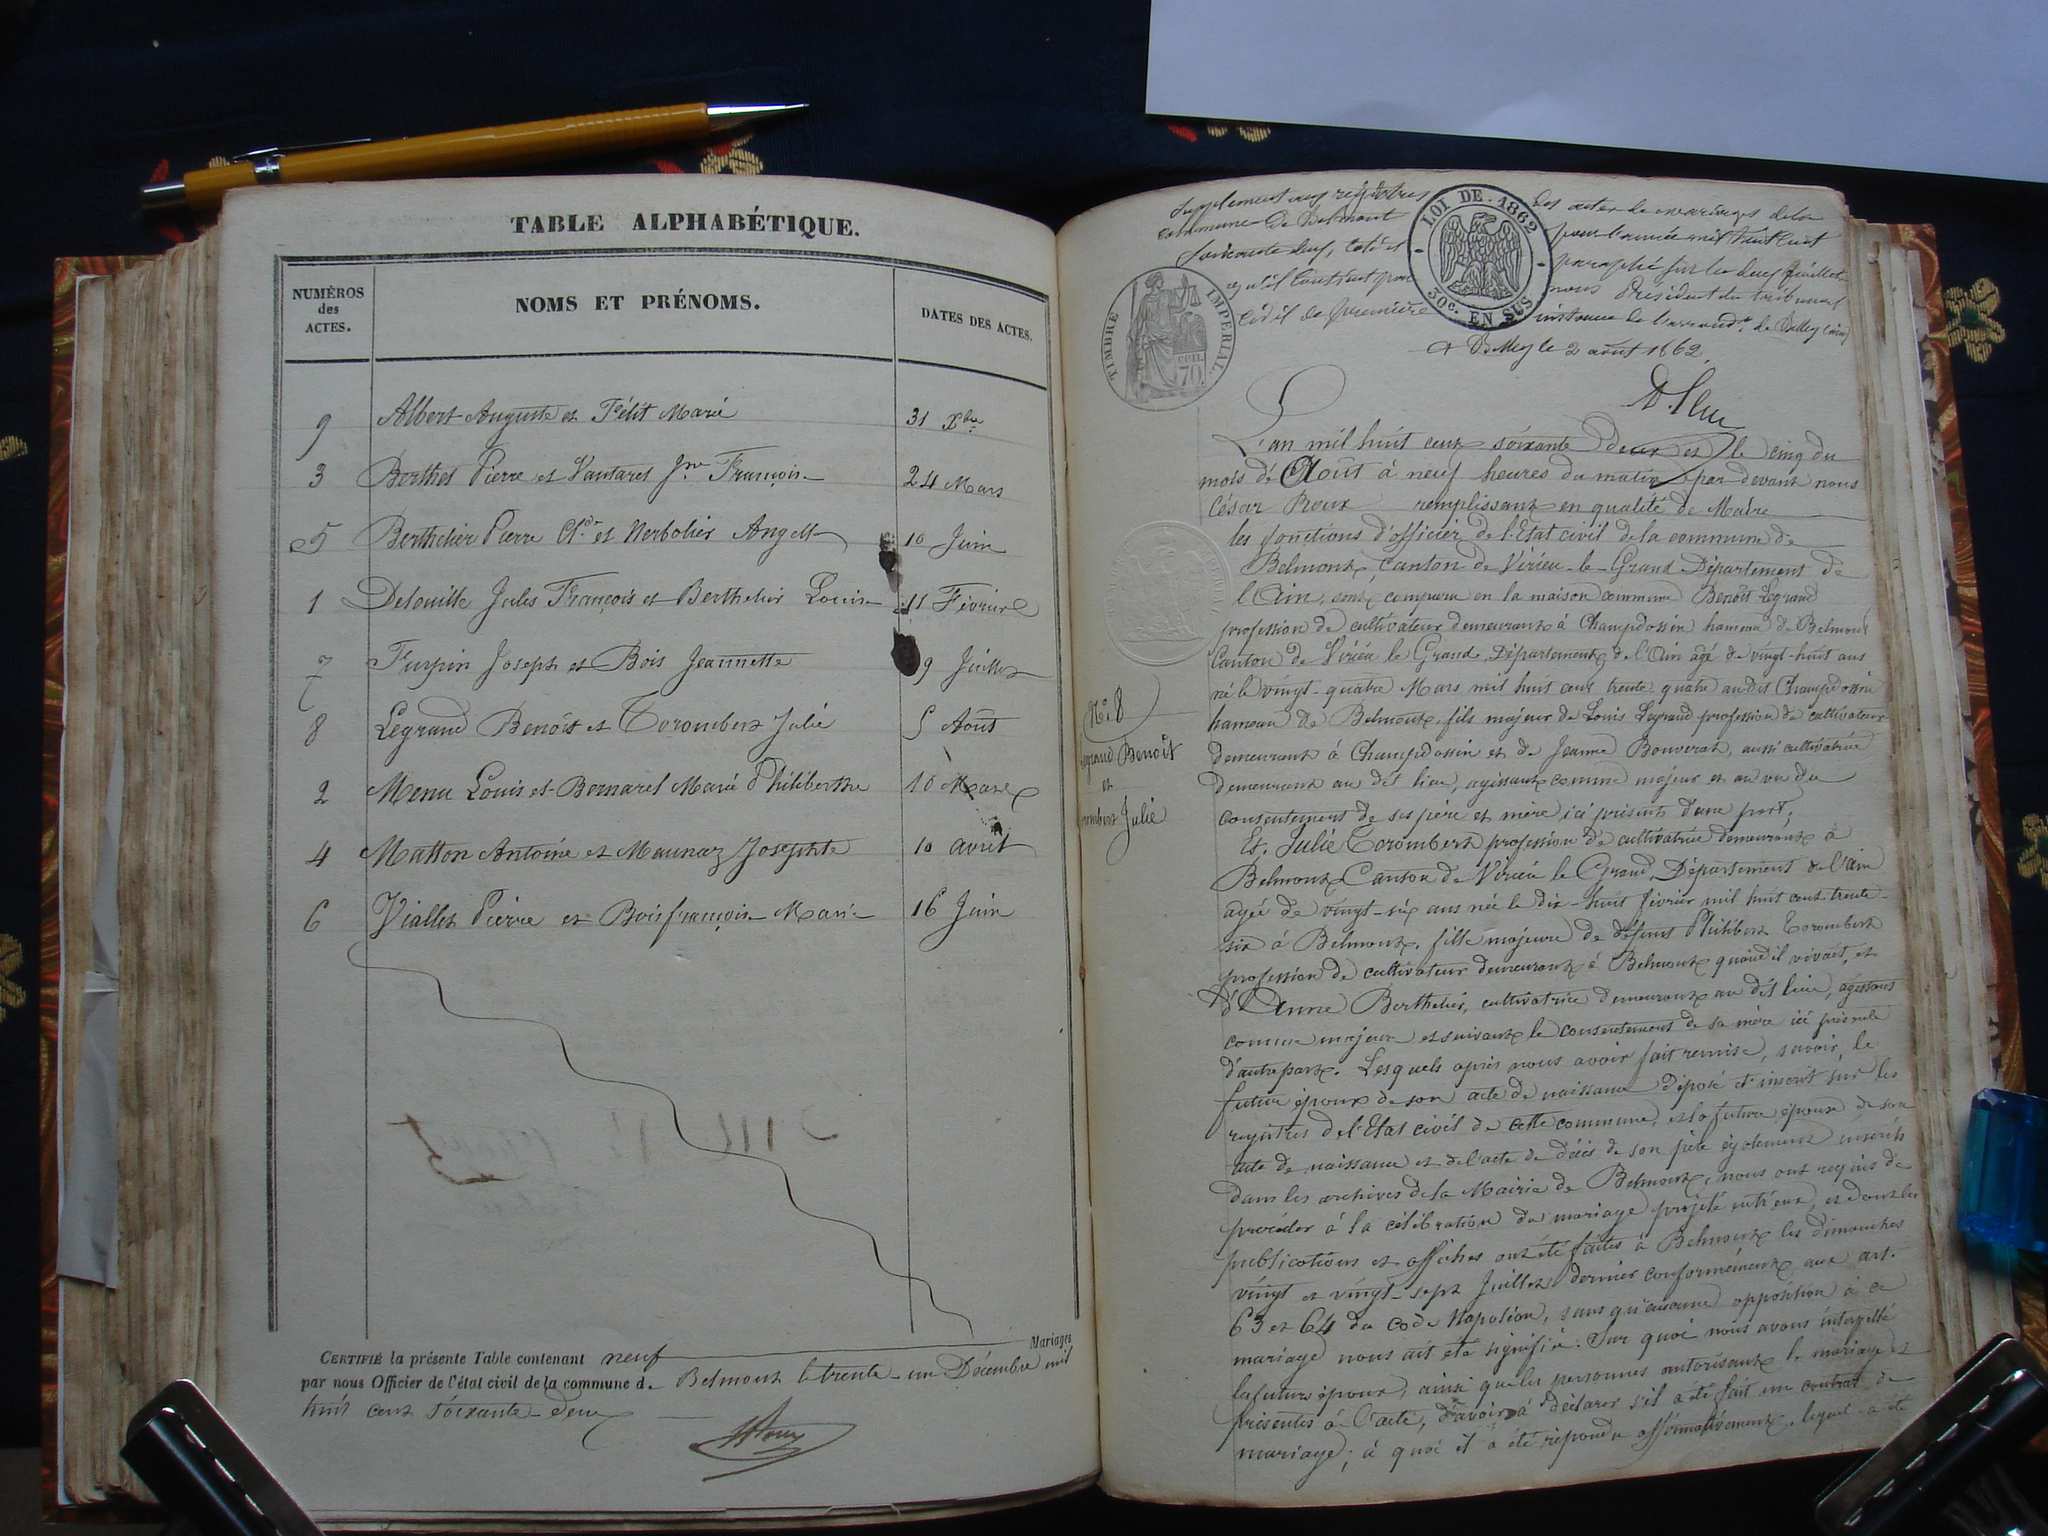 TABLE ALPHABÉTIQUE.
NUMÉROS des ACTES.
NOMS ET PRÉNOMS.
DATES DES ACTES.
9 Albert Auguste et Pétit Marié 31 Xbre
3 Berthet Pierre et Vautaret Jne Françoise 24 Mars
5 Berthelier Pierre Cde et Nerbolier Angel 10 Juin
1 Delouille Jules François et Berthelier Louise 11 Février
7 Furpin Joseph et Bois Jeannette 9 Juillet
8 Legrand Benoît et Torombert Julie 5 Août
2 Menu Louis et Bernard Marie Philiberthe 10 Mars
4 Matton Antoine et Maunaz Josephte 10 avril
6 Viallet Pierre et Bois françoise Marie 16 Juin
CERTIFIÉ la présente Table contenant neuf Mariages
par nous Officier de l'état civil de la commune d. Belmont le trente-un Décembre mil
huit cent soixante-deux
Supplement aux registres des actes de mariages de la
commune de Belmont pour l'année mil huit cent
soixante deux, cotés et paraphé sur les deux feuillets
qu'il contient par nous Président du tribunal
civil de première instance de l'arrondt. de Belley (ain)
A Belley le 2 août 1862
LOI DE 1862
30c. EN SUS
TIMBRE IMPERIAL
70
L'an mil huit cent soixante deux et le cinq du
mois de Août à neuf heures du matin pardevant nous
César Roux remplissant en qualité de Maire
les fonctions d'officier de l'Etat civil de la commune de
Belmont, canton de Virieu-le-Grand Département de
l'Ain, sont comparu en la maison commune Benoît Legrand
profession de cultivateur demeurant à Champdossin hameau de Belmont
Canton de Virieu le Grand, Département de l'Ain agé de vingt-huit ans
né le vingt-quatre Mars mil huit cent trente quatre au dit Champdossin
hameau de Belmont, fils majeur de Louis Legrand profession de cultivateur
demeurant à Champdossin et de Jeanne Bouverat, aussi cultivatrice
demeurant au dit lieu, agissant comme majeur et au vu du
consentement de ses père et mère ici présents d'une part,
Et Julie Torombert profession de cultivatrice demeurant à
Belmont Canton de Virieu le Grand, Département de l'ain
agée de vingt-six ans née le dix-huit février mil huit cent trente-
six à Belmont, fille majeure de défunt Philibert Torombert
profession de cultivateur demeurant à Belmont quand il vivait, et
d'Anne Berthelier, cultivatrice demeurant au dit lieu, agissant
comme majeure et suivant le consentement de sa mère ici présente
d'autre part. Lesquels après nous avoir fait remise, savoir, le
futur époux de son acte de naissance déposé et inscrit sur les
registres de l'Etat civil de cette commune, et la future épouse de son
acte de naissance et de l'acte de décès de son père également inscrits
dans les archives de la Mairie de Belmont, nous ont requis de
procéder à la célébration du mariage projeté entr'eux, et dont les
publications et affiches ont été faites à Belmont les dimanches
vingt et vingt-sept Juillet dernier conformément aux art.
63 et 64 du code Napoléon, sans qu'aucune opposition à ce
mariage nous ait été signifiée. Sur quoi nous avons interpellé
les futurs époux, ainsi que les personnes autorisant le mariage et
présentes à l'acte, d'avoir à déclarer s'il a été fait un contrat de
mariage; à quoi il a été répondu affirmativement, lequel a été
No 8
Legrand Benoît
et
Torombert Julie